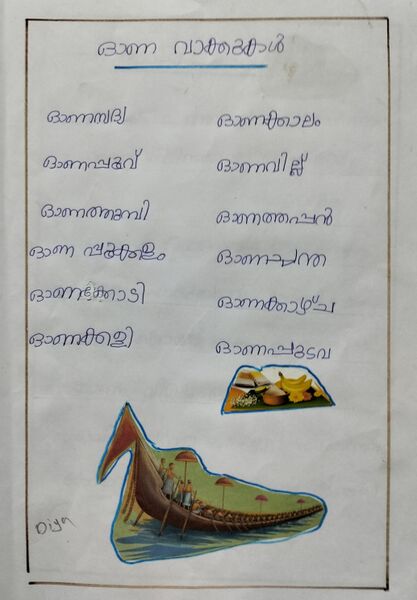 ഓണ വാക്കുകൾ
ഓണസദ്യ
ഓണപ്പൂവ്
ഓണത്തുമ്പി
ഓണ പ്പൂക്കളം
ഓണക്കോടി
ഓണക്കളി
ഓണക്കാലം
ഓണവില്ല്
ഓണത്തപ്പൻ
ഓണച്ചന്ത
ഓണക്കാഴ്ച
ഓണപ്പുടവ
Diya